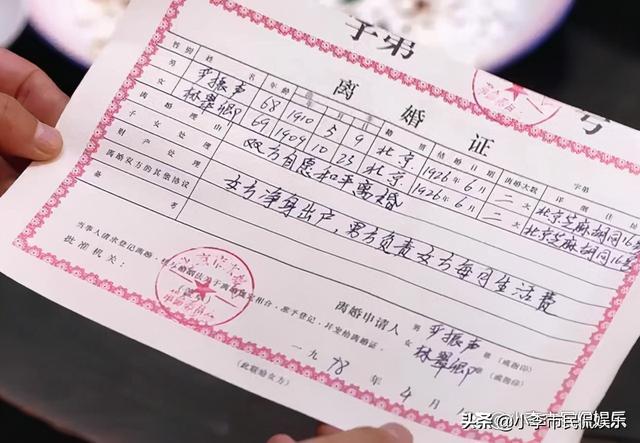 字第 号
离婚证
性别 姓名 年龄 出生年月日 籍贯 结婚日期 离婚次数 详细住址
男 严振声 68 1910 5 9 北京 1926年6月 二次 北京芝麻胡同16号
女 林翠卿 69 1909 10 23 北京 1926年6月 二次 北京芝麻胡同16号
离婚理由 双方自愿和平离婚
子女处理
财产处理 女方净身出户,男方负责女方每月生活费
离婚双方的其他协议
备考
当事人请求登记离婚,
相合,准予登记,并发给离婚证。
批准机关:
离婚申请人 男 严振声 章(或指印)
女 林翠卿 章(或指印)
一九78年4月
(此联给女方)
头条@小李市民侃娱乐